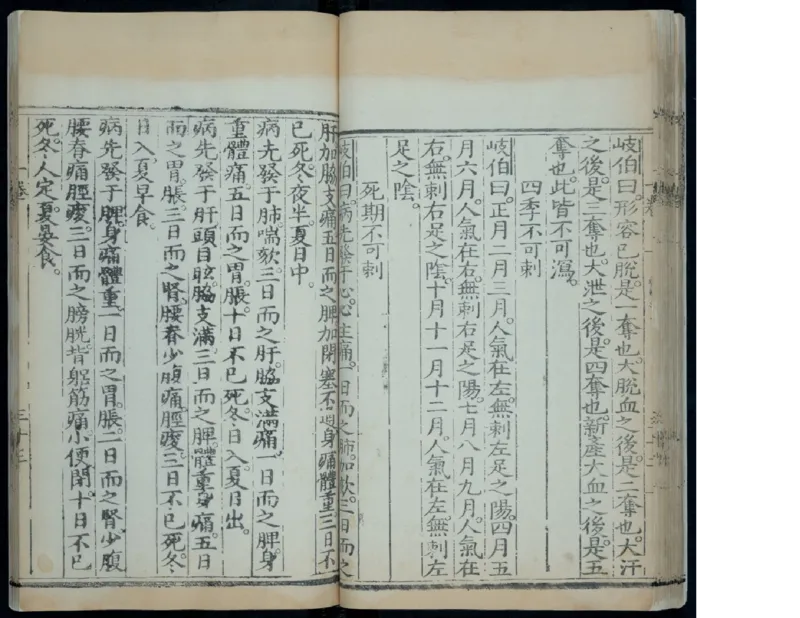 岐伯曰。形容已脫。是一奪也。大脫血之後。是二奪也。大汗
之後。是三奪也。大泄之後。是四奪也。新產大血之後。是五
奪也。此皆不可瀉。
四季不可刺
岐伯曰。正月二月三月。人氣在左。無刺左足之陽。四月五
月六月。人氣在右。無刺右足之陽。七月八月九月。人氣在
右。無刺右足之陰。十月十一月十二月。人氣在左。無刺左
足之陰。
死期不可刺
岐伯曰。病先發于心。心主痛。一日而之肺。加欬。三日而之
肝。加脇支痛。五日而之脾。加閉塞不通。身痛體重。三日不
已死。冬夜半。夏日中。
病先發于肺。喘欬。三日而之肝。脇支滿痛。一日而之脾。身
重體痛。五日而之胃。脹。十日不已死。冬日入。夏日出。
病先發于肝。頭目眩。脇支滿。三日而之脾。體重身痛。五日
而之胃。脹。三日而之腎。腰脊少腹痛。脛痠。三日不已死。冬
日入。夏早食。
病先發于脾。身痛體重。一日而之胃。脹。二日而之腎。少腹
腰脊痛。脛痠。三日而之膀胱。背䐃筋痛。小便閉。十日不已
死。冬人定。夏晏食。
一卷
三十三